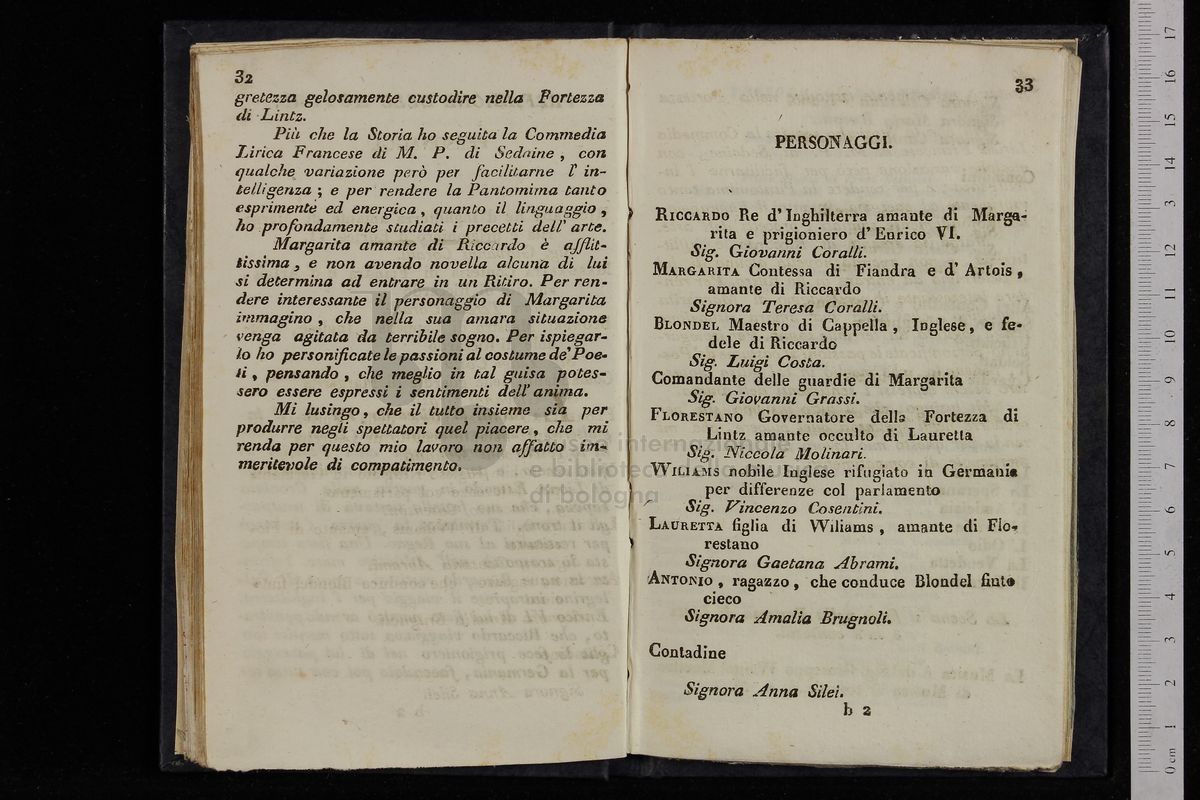 32
gretezza gelosamente custodire nella Fortezza
di Lintz.
Più che la Storia ho seguita la Commedia
Lirica Francese di M. P. di Sedaine , con
qualche variazione però per facilitarne l' in-
telligenza ; e per rendere la Pantomima tanto
esprimente ed energica , quanto il linguaggio ,
ho profondamente studiati i precetti dell' arte.
Margarita amante di Riccardo è afflit-
tissima , e non avendo novella alcuna di lui
si determina ad entrare in un Ritiro. Per ren-
dere interessante il personaggio di Margarita
immagino , che nella sua amara situazione
venga agitata da terribile sogno. Per ispiegar-
lo ho personificate le passioni al costume de' Poe-
ti , pensando , che meglio in tal guisa potes-
sero essere espressi i sentimenti dell' anima.
Mi lusingo, che il tutto insieme sia per
produrre negli spettatori quel piacere , che mi
renda per questo mio lavoro non affatto im-
meritevole di compatimento.
33
PERSONAGGI.
RICCARDO Re d' Inghilterra amante di Marga-
rita e prigioniero d' Enrico VI.
Sig. Giovanni Coralli.
MARGARITA Contessa di Fiandra e d' Artois ,
amante di Riccardo
Signora Teresa Coralli.
BLONDEL Maestro di Cappella , Inglese, e fe-
dele di Riccardo
Sig. Luigi Costa.
Comandante delle guardie di Margarita
Sig. Giovanni Grassi.
FLORESTANO Governatore della Fortezza di
Lintz amante occulto di Lauretta
Sig. Niccola Molinari.
WILIAMS nobile Inglese rifugiato in Germania
per differenze col parlamento
Sig. Vincenzo Cosentini.
LAURETTA figlia di Wiliams , amante di Flo-
restano
Signora Gaetana Abrami.
ANTONIO , ragazzo , che conduce Blondel finto
cieco
Signora Amalia Brugnoli.
Contadine
Signora Anna Silei.
b 2
museo internazionale
e biblioteca della musica
di bologna
0 cm 1 2 3 4 5 6 7 8 9 10 11 12 13 14 15 16 17